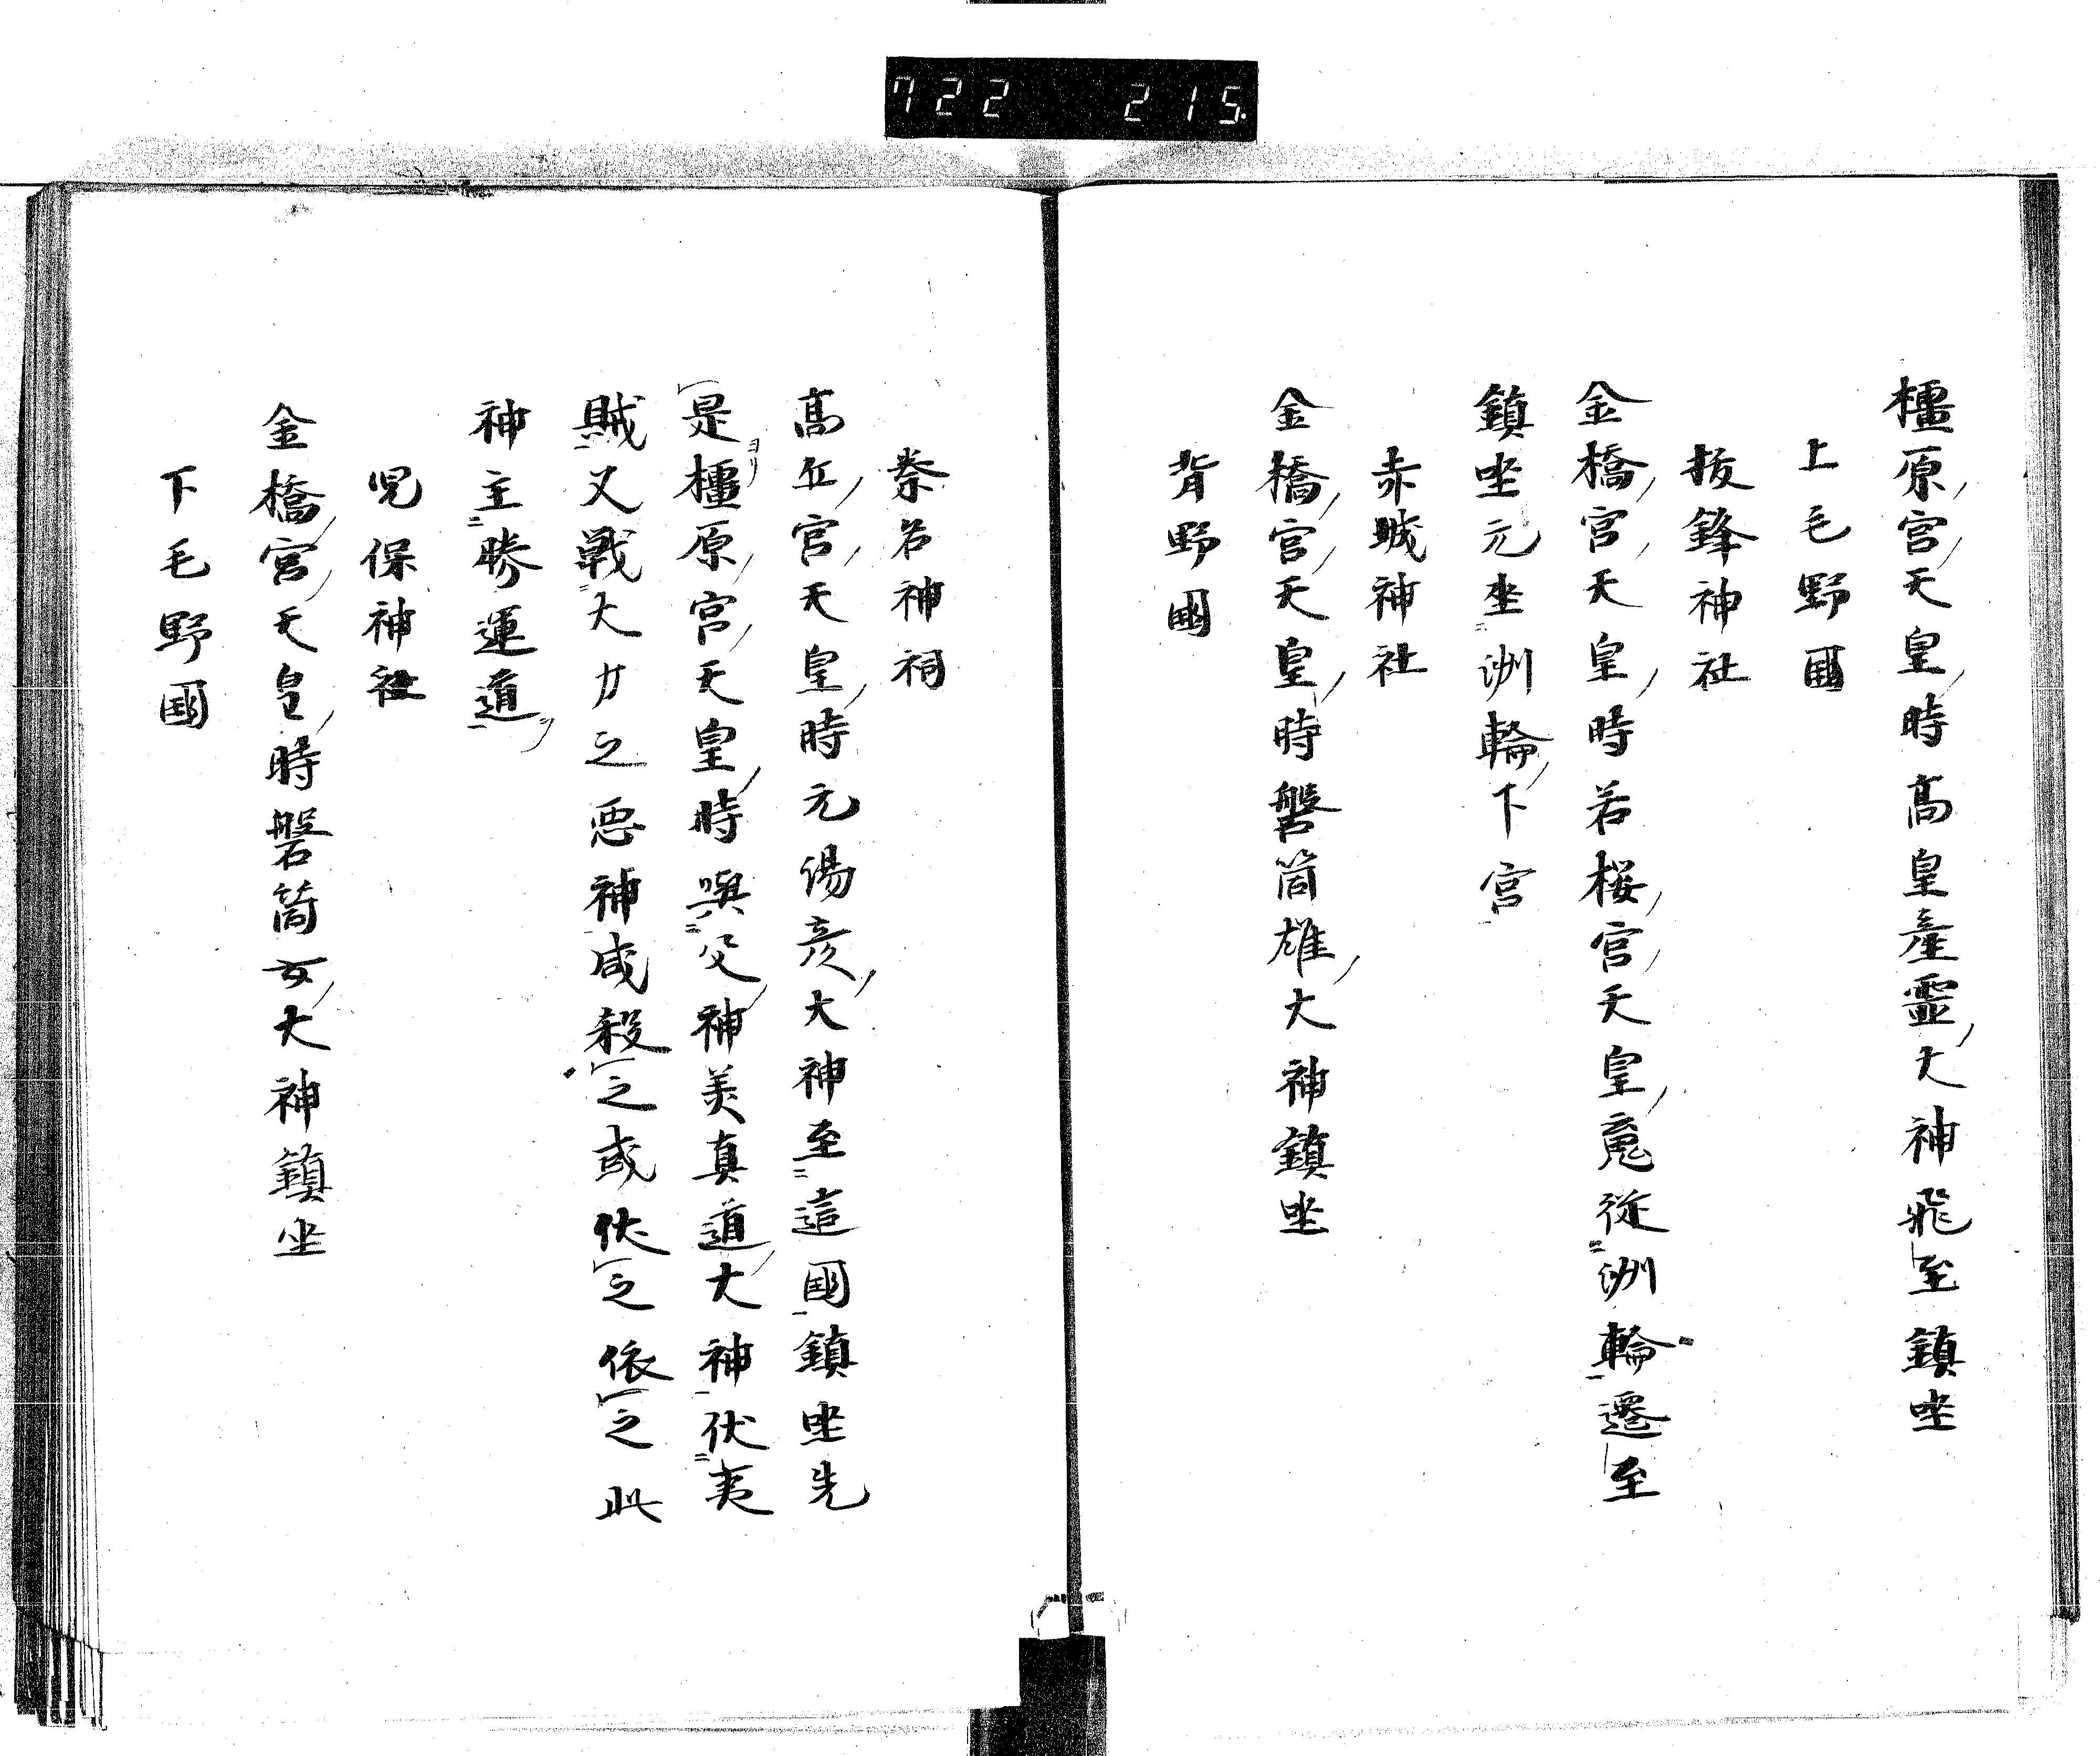 722 215
橿原宮天皇時高皇産霊大神飛至鎮坐
上毛野國
抜鋒神社
金橋宮天皇時若桜宮天皇魂従洲輪遷至
鎮坐元坐洲輪下宮
赤城神社
金橋宮天皇時磐筒雄大神鎮坐
背野國
榛名神祠
高丘宮天皇時元湯彦大神至這國鎮坐先
是橿原宮天皇時與父神美真道大神伏夷
賊又戦大力之悪神咸殺之或伏之依之此
神主勝運道
児保神社
金橋宮天皇時磐筒女大神鎮坐
下毛野國